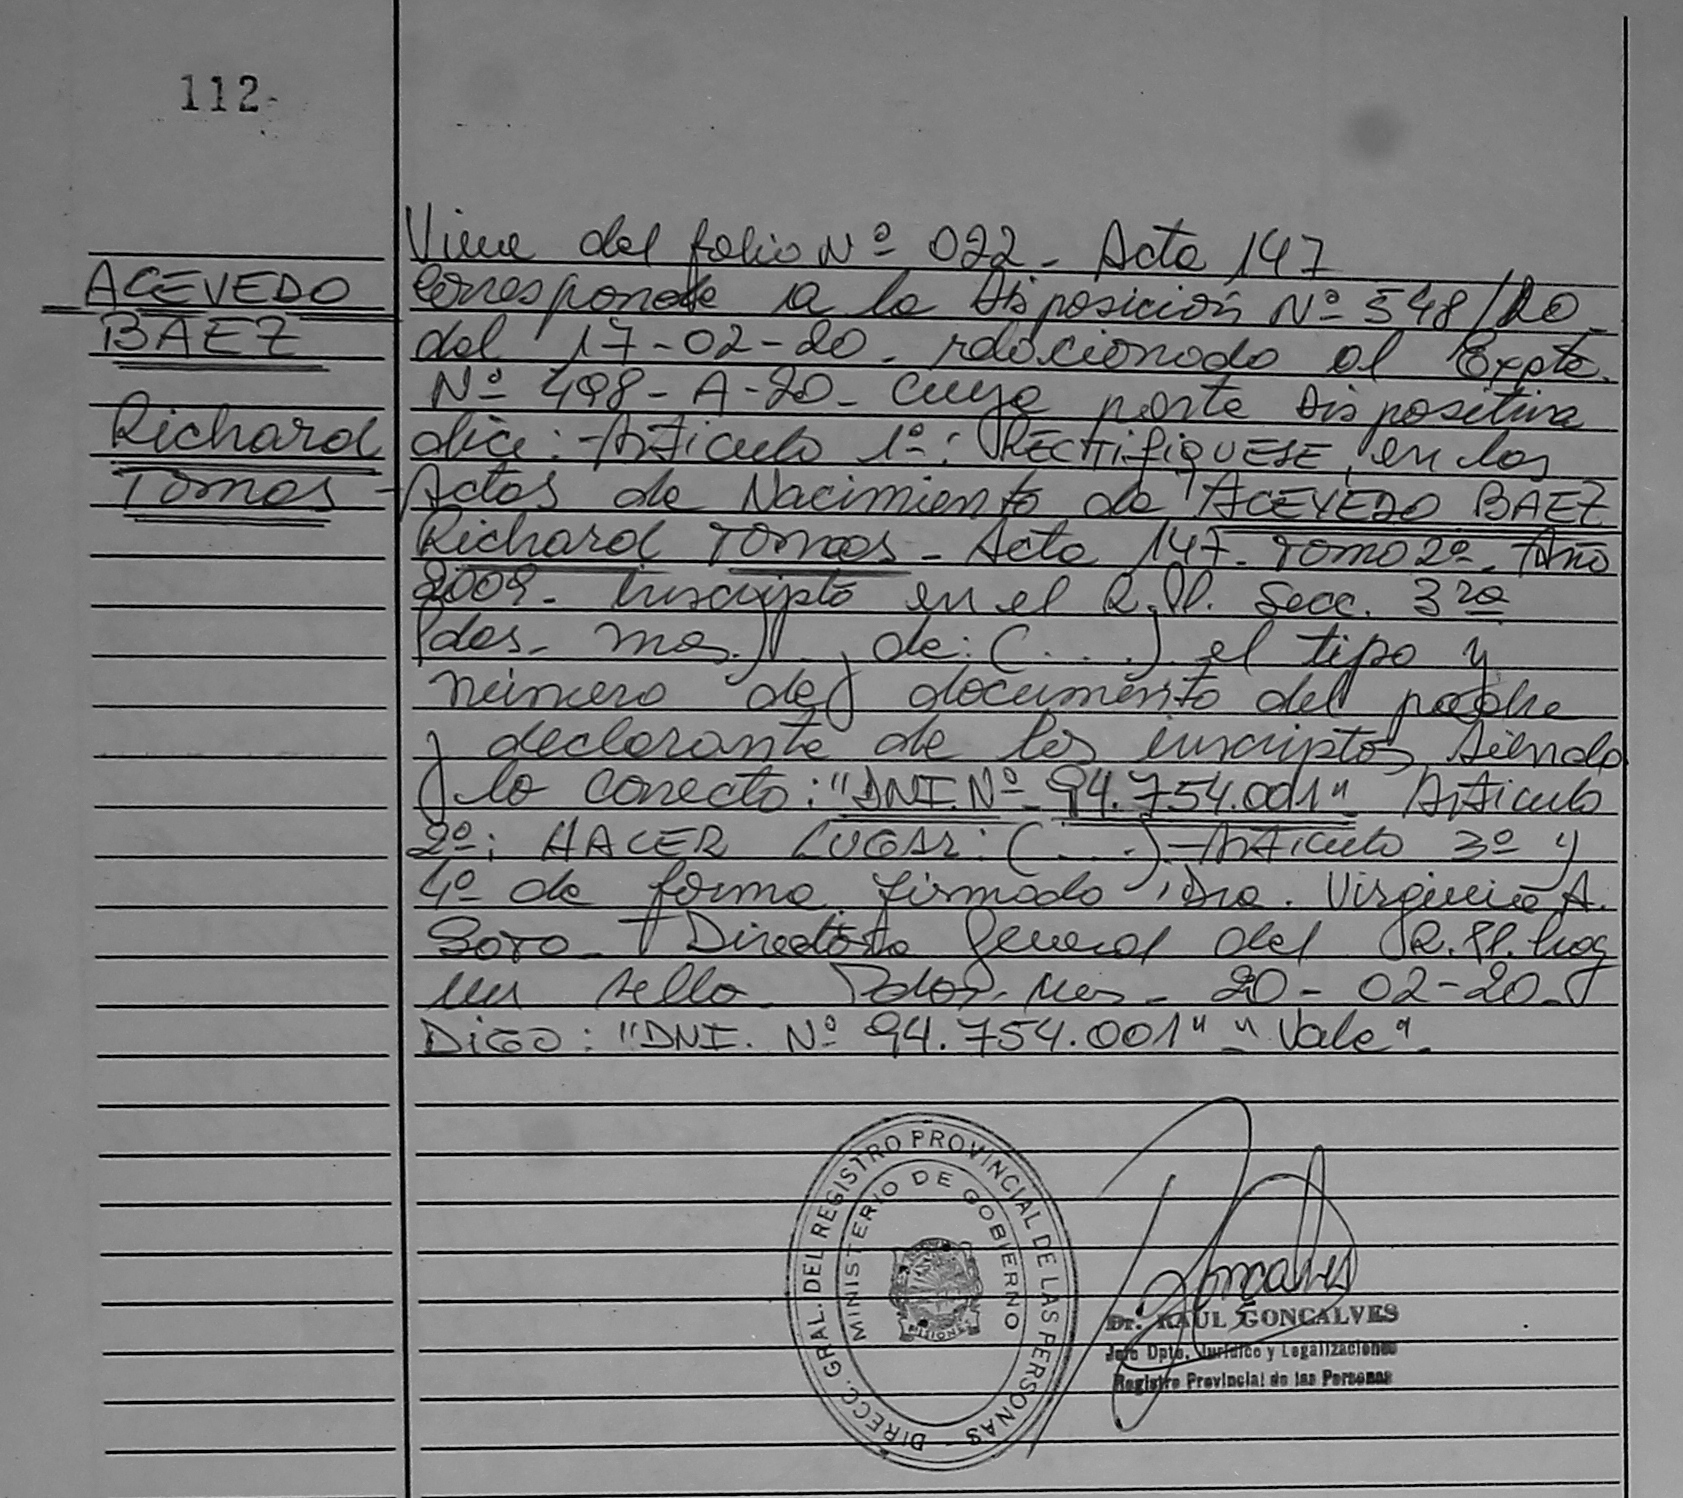 112-
ACEVEDO
BAEZ
Richard
Tomas-
Viene del folio Nº 022- Acta 147
corresponde a la Disposición Nº 548/20-
del 17-02-20- relacionado al Expte.
Nº 498-A-20- cuya parte dispositiva
dice: -Artículo 1º: RECTIFIQUESE, en las
Actas de Nacimiento de ACEVEDO BAEZ
Richard Tomas- Acta 147- Tomo 2º- Año
2009- Inscripto en el R.PP. Secc. 3ra
Pdas- mes. de: (....) el tipo y
número de documento del padre
y declarante de los inscriptos, siendo
lo correcto: "DNI. Nº 94.754.001" Artículo
2º: HACER LUGAR: (....)-Artículo 3º y
4º de forma firmado Dra. Virginia A.
Soto- Directora General del R.PP. hay
un sello. Pdas. Mes- 20-02-20-
Digo: "DNI. Nº 94.754.001" "Vale".
DIRECC. GRAL. DEL REGISTRO PROVINCIAL DE LAS PERSONAS -
MINISTERIO DE GOBIERNO
MISIONES
Goncalves
Dr. RAUL GONCALVES
Jefe Dpto. Jurídico y Legalizaciones
Registro Provincial de las Personas